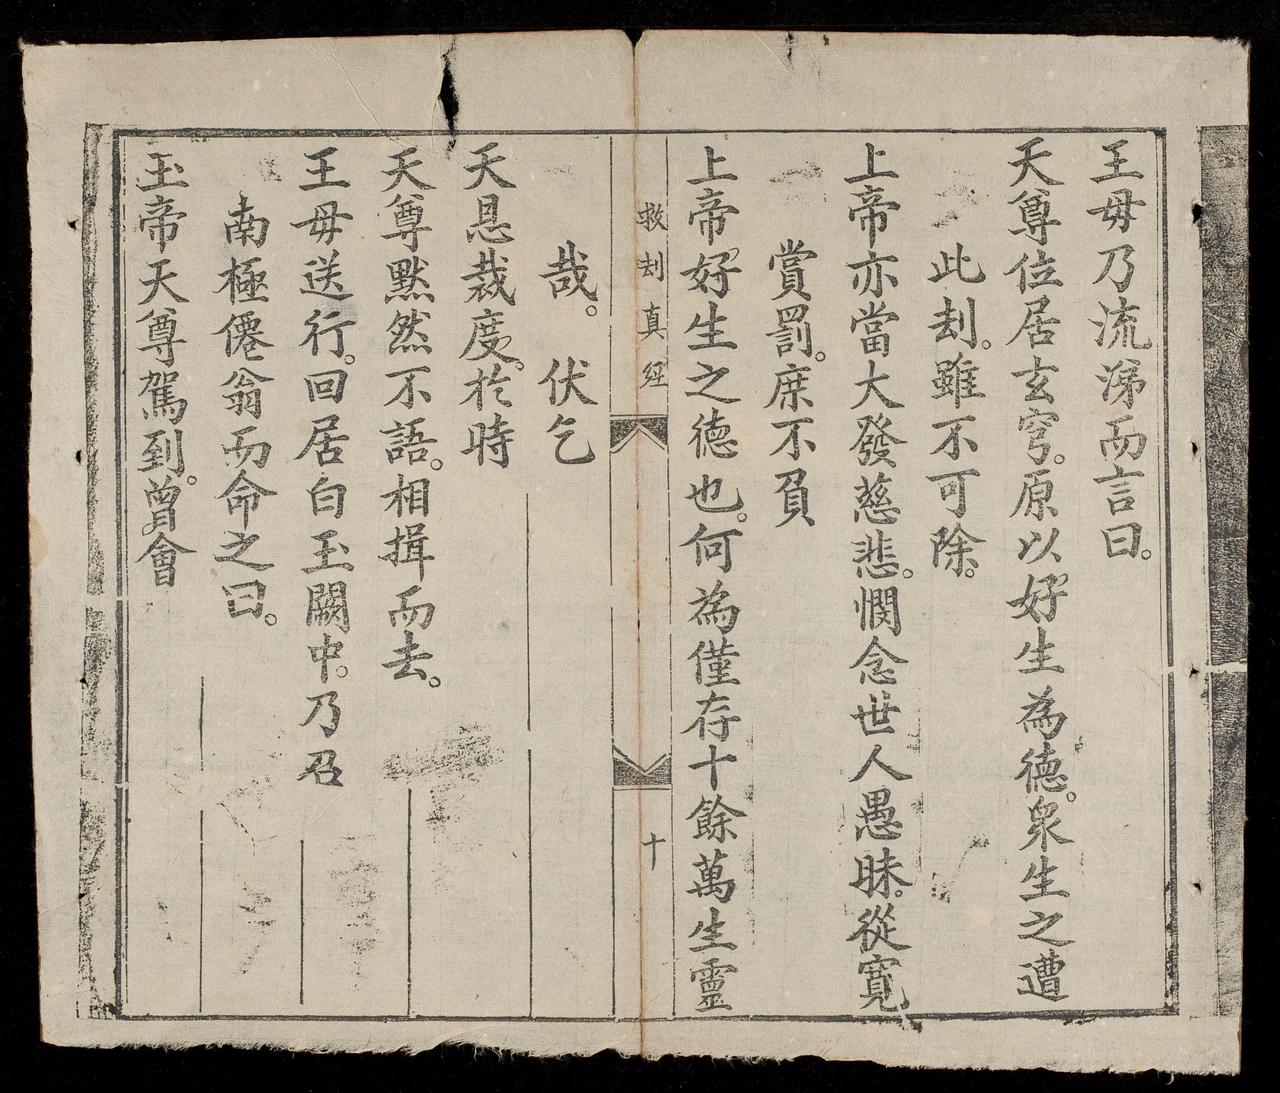 王母乃流涕而言曰。
天尊位居玄穹。原以好生為德。衆生之遭
此刦。雖不可除。
上帝亦當大發慈悲。憫念世人愚昧。從寬
賞罰。庶不負
上帝好生之德也。何為僅存十餘萬生靈
救刦真經
十
哉。伏乞
天恩裁度。於時
天尊默然不語。相揖而去。
王母送行。回居白玉闕中。乃召
南極僊翁而命之曰。
玉帝天尊駕到。曾會